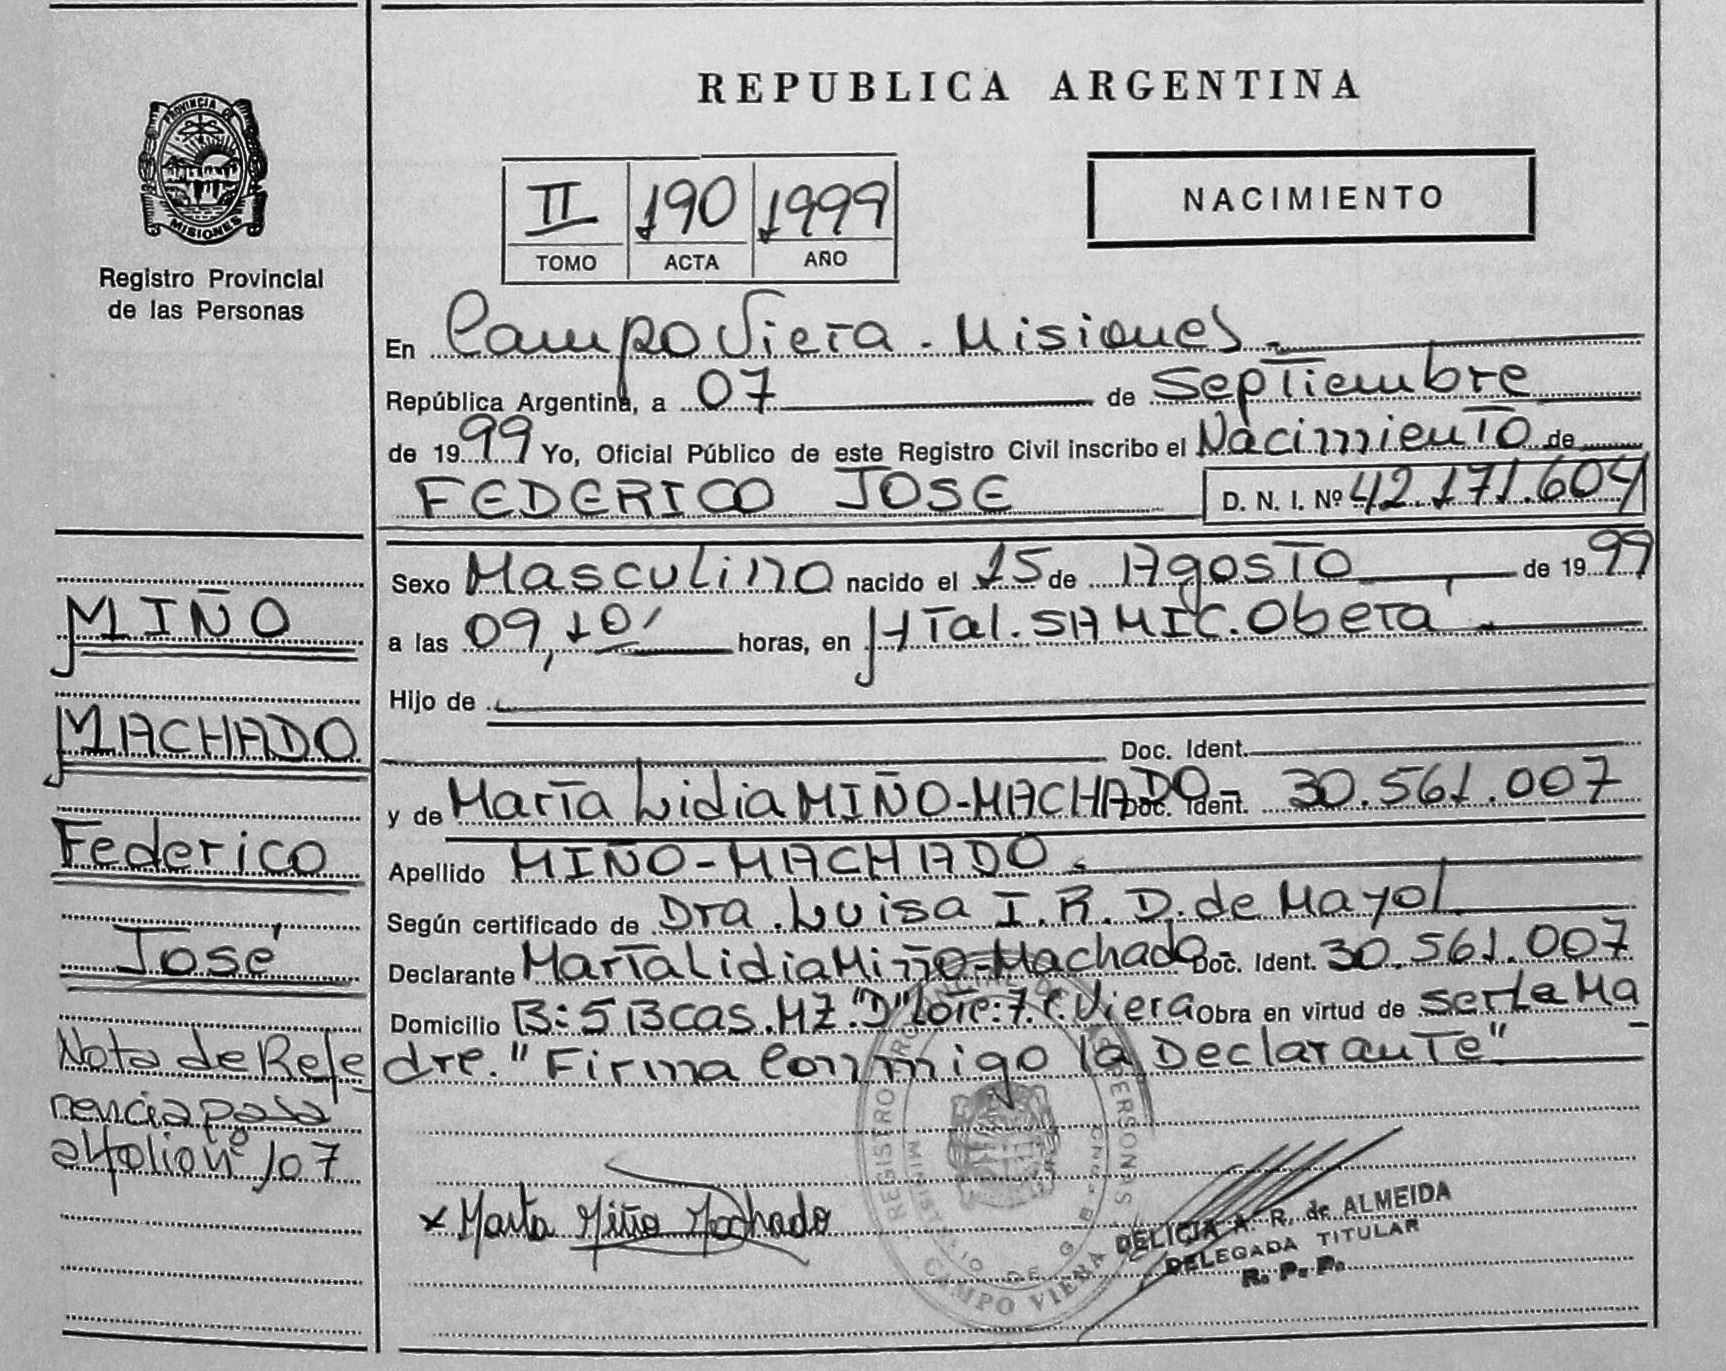 PROVINCIA DE
MISIONES
Registro Provincial
de las Personas
REPUBLICA ARGENTINA
II 190 1999
TOMO ACTA AÑO
NACIMIENTO
En Campo Viera - Misiones.
República Argentina, a 07 de Septiembre
de 1999 Yo, Oficial Público de este Registro Civil inscribo el Nacimiento de
FEDERICO JOSE D. N. I. Nº 42.171.604
Sexo Masculino nacido el 15 de Agosto de 1999
a las 09,10' horas, en Htal. SAMIC. Obera
Hijo de
Doc. Ident.
y de Marta Lidia MIÑO-MACHADO- Doc. Ident. 30.561.007
Apellido MIÑO-MACHADO.
Según certificado de Dra. Luisa I. R. D. de Mayol
Declarante Marta Lidia Miño-Machado- Doc. Ident. 30.561.007
Domicilio B: 5 Bcas. MZ. "D" Lote: 7. C. Viera Obra en virtud de ser la Ma
dre. "Firma Conmigo la Declarante"
MIÑO
MACHADO
Federico
José
Nota de Refe
rencia pasa
al folio nº 107
x Marta Miño Machado
REGISTRO PROVINCIAL DE LAS PERSONAS
MINISTERIO DE GOB
CAMPO VIERA
DELICIA A. R. de ALMEIDA
DELEGADA TITULAR
R. P. P.